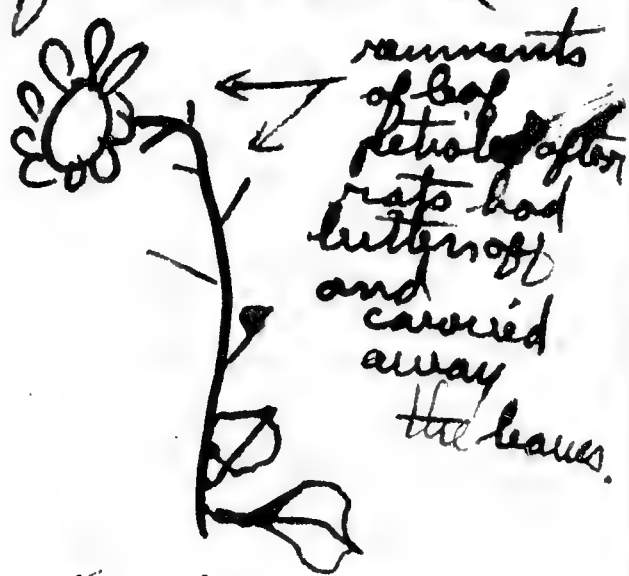 remnants
of leaf
petioles after
rats had
bitten off
and
carried
away
the leaves.